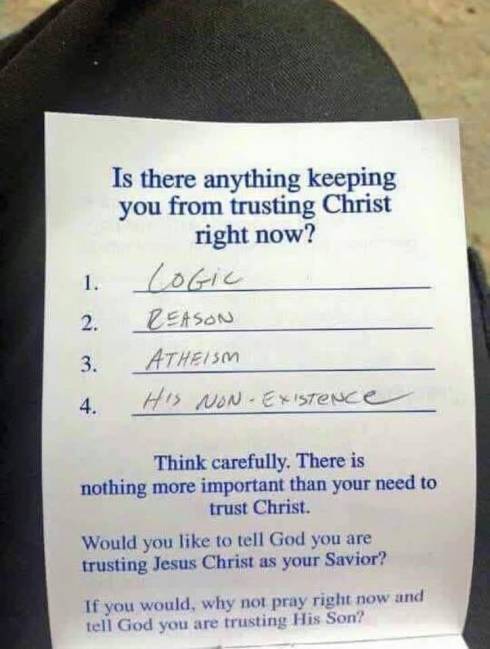 Is there anything keeping
you from trusting Christ
right now?
1. LOGIC
2. REASON
3. ATHEISM
4. HIS NON-EXISTENCE
Think carefully. There is
nothing more important than your need to
trust Christ.
Would you like to tell God you are
trusting Jesus Christ as your Savior?
If you would, why not pray right now and
tell God you are trusting His Son?